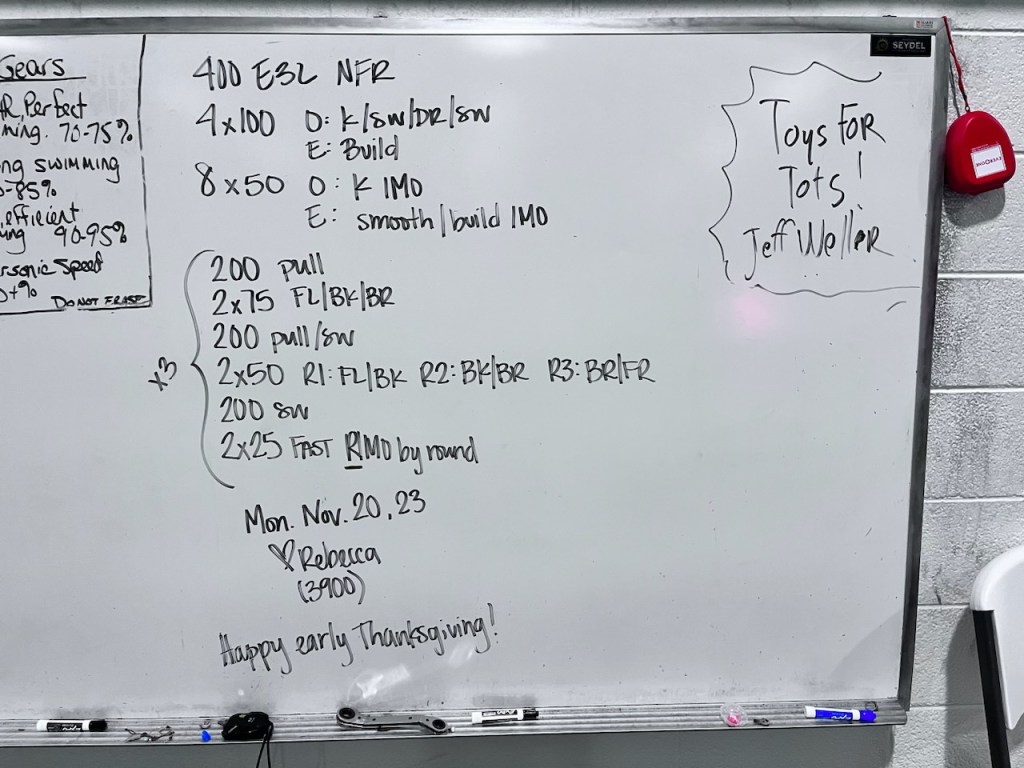 Gears
Perfect
ming. 70-75%
ng swimming
-85%
efficient
90-95%
rsonic Speed
+%
DO NOT ERASE
400 E3L NFR
4x100 O: K/SW/DR/SW
E: Build
8x50 O: K IMO
E: smooth/build IMO
x3
200 pull
2x75 FL/BK/BR
200 pull/sw
2x50 R1: FL/BK R2: BK/BR R3: BR/FR
200 sw
2x25 FAST RIMO by round
Mon. Nov. 20, 23
♡Rebecca
(3900)
Happy early Thanksgiving!
SEYDEL
Toys FOR
Tots!
Jeff Weller